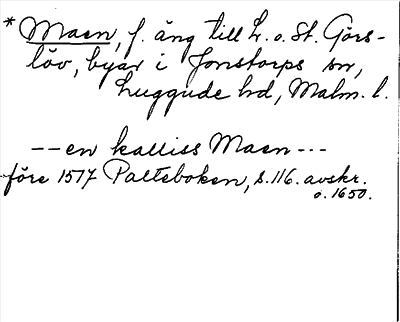 * Maen, f. äng till L. o. St. Görs-
löv, byar i Jonstorps sn,
Luggude hd, Malm. l.
-- en kalliss Maen ---
före 1517 Palteboken, s. 116. avskr.
o. 1650.